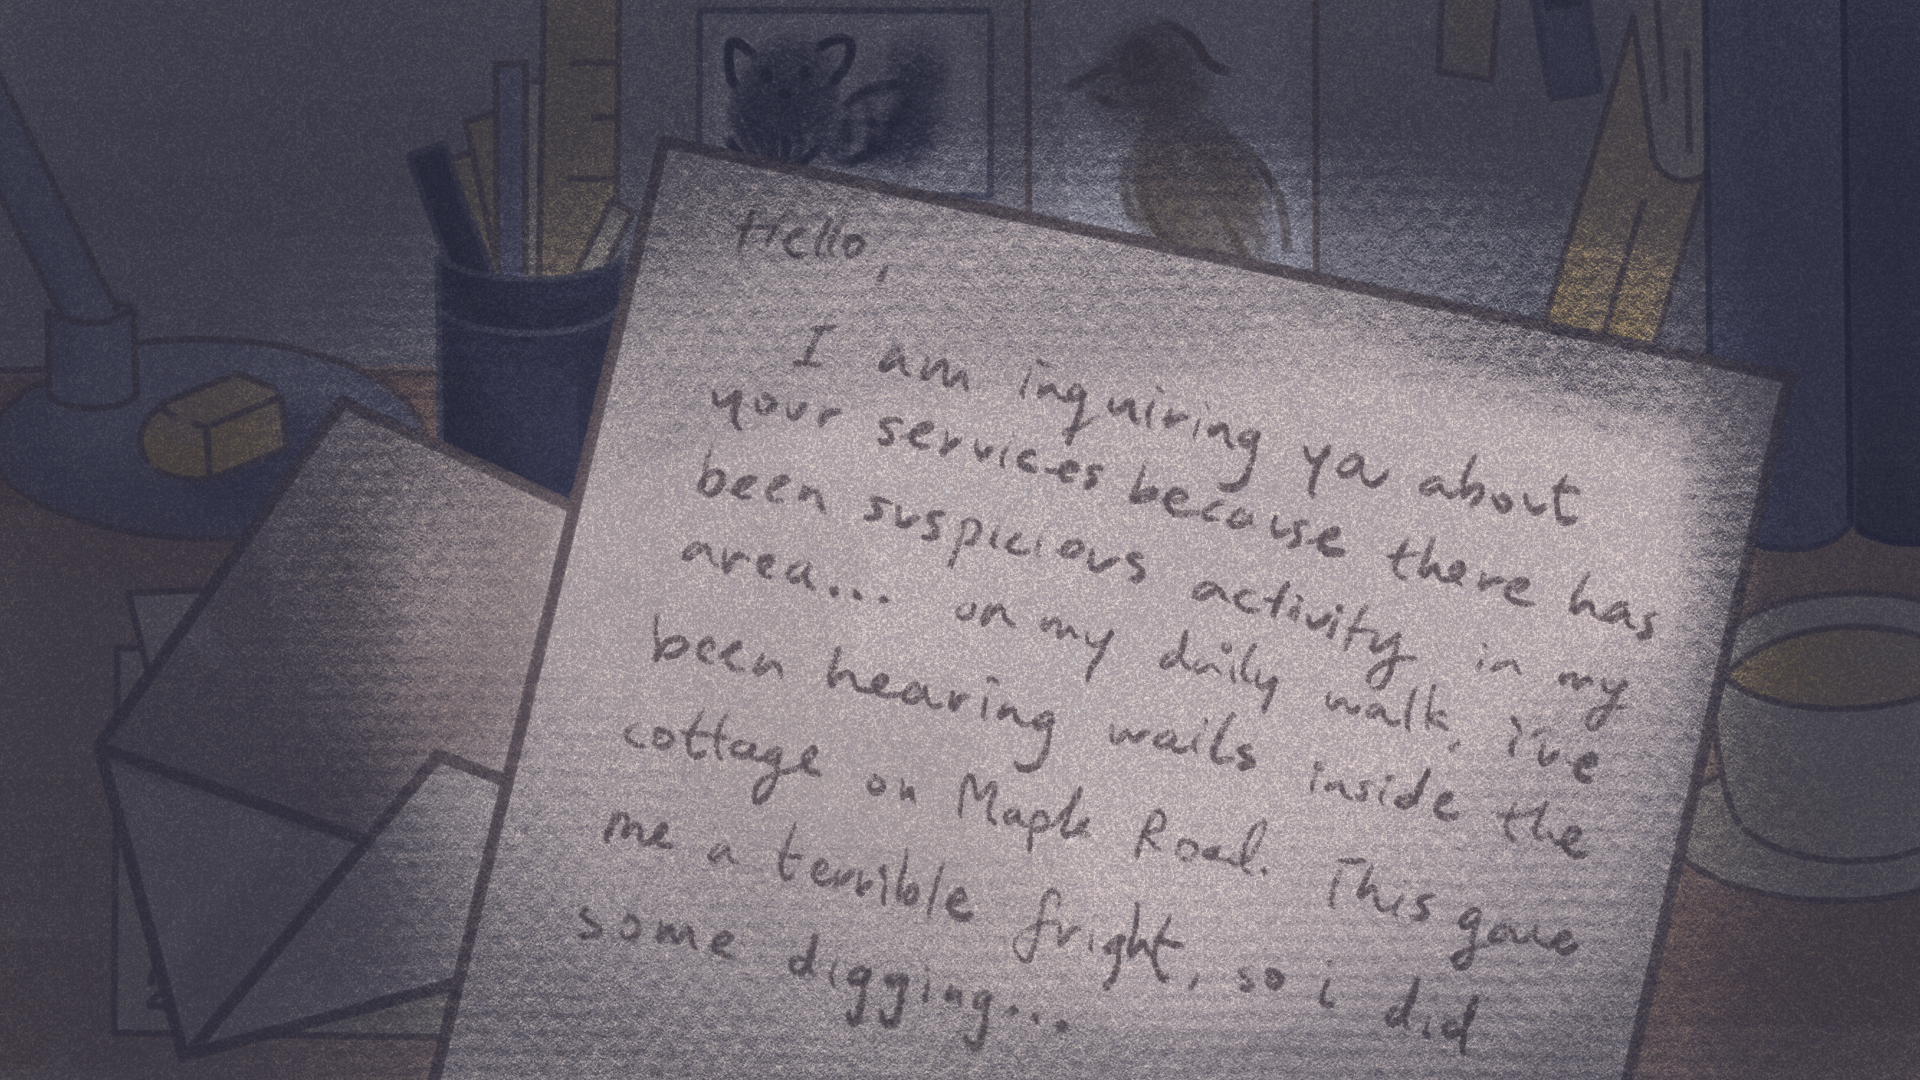 Hello,
I am inquiring you about
your services because there has
been suspicious activity in my
area... on my daily walk, i've
been hearing wails inside the
cottage on Maple Road. This gave
me a terrible fright, so i did
some digging...